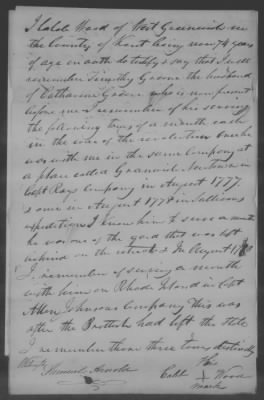 I Caleb Wood of West Greenwich in
the County of Kent being now 74 years
of age on oath do testify & say that I well
remember Timothy Green the husband
of Catharine Green who is now present
before me I remember of his serving
the following tours of a month each
in the war of the revolution
was with me in the same company at
a place called in
Capt Rays Company in August 1777.
& one in August 1778 in Sullivans
expedition I know him to serve a month
he was one of the guard that was left
behind on the retreat & In August
I remember of serving a month
with him on Rhode Island in Capt
Allen Johnsons Company this was
after the Brittish had left the State
I remember those three tours distinctly
his
Caleb X Wood
mark